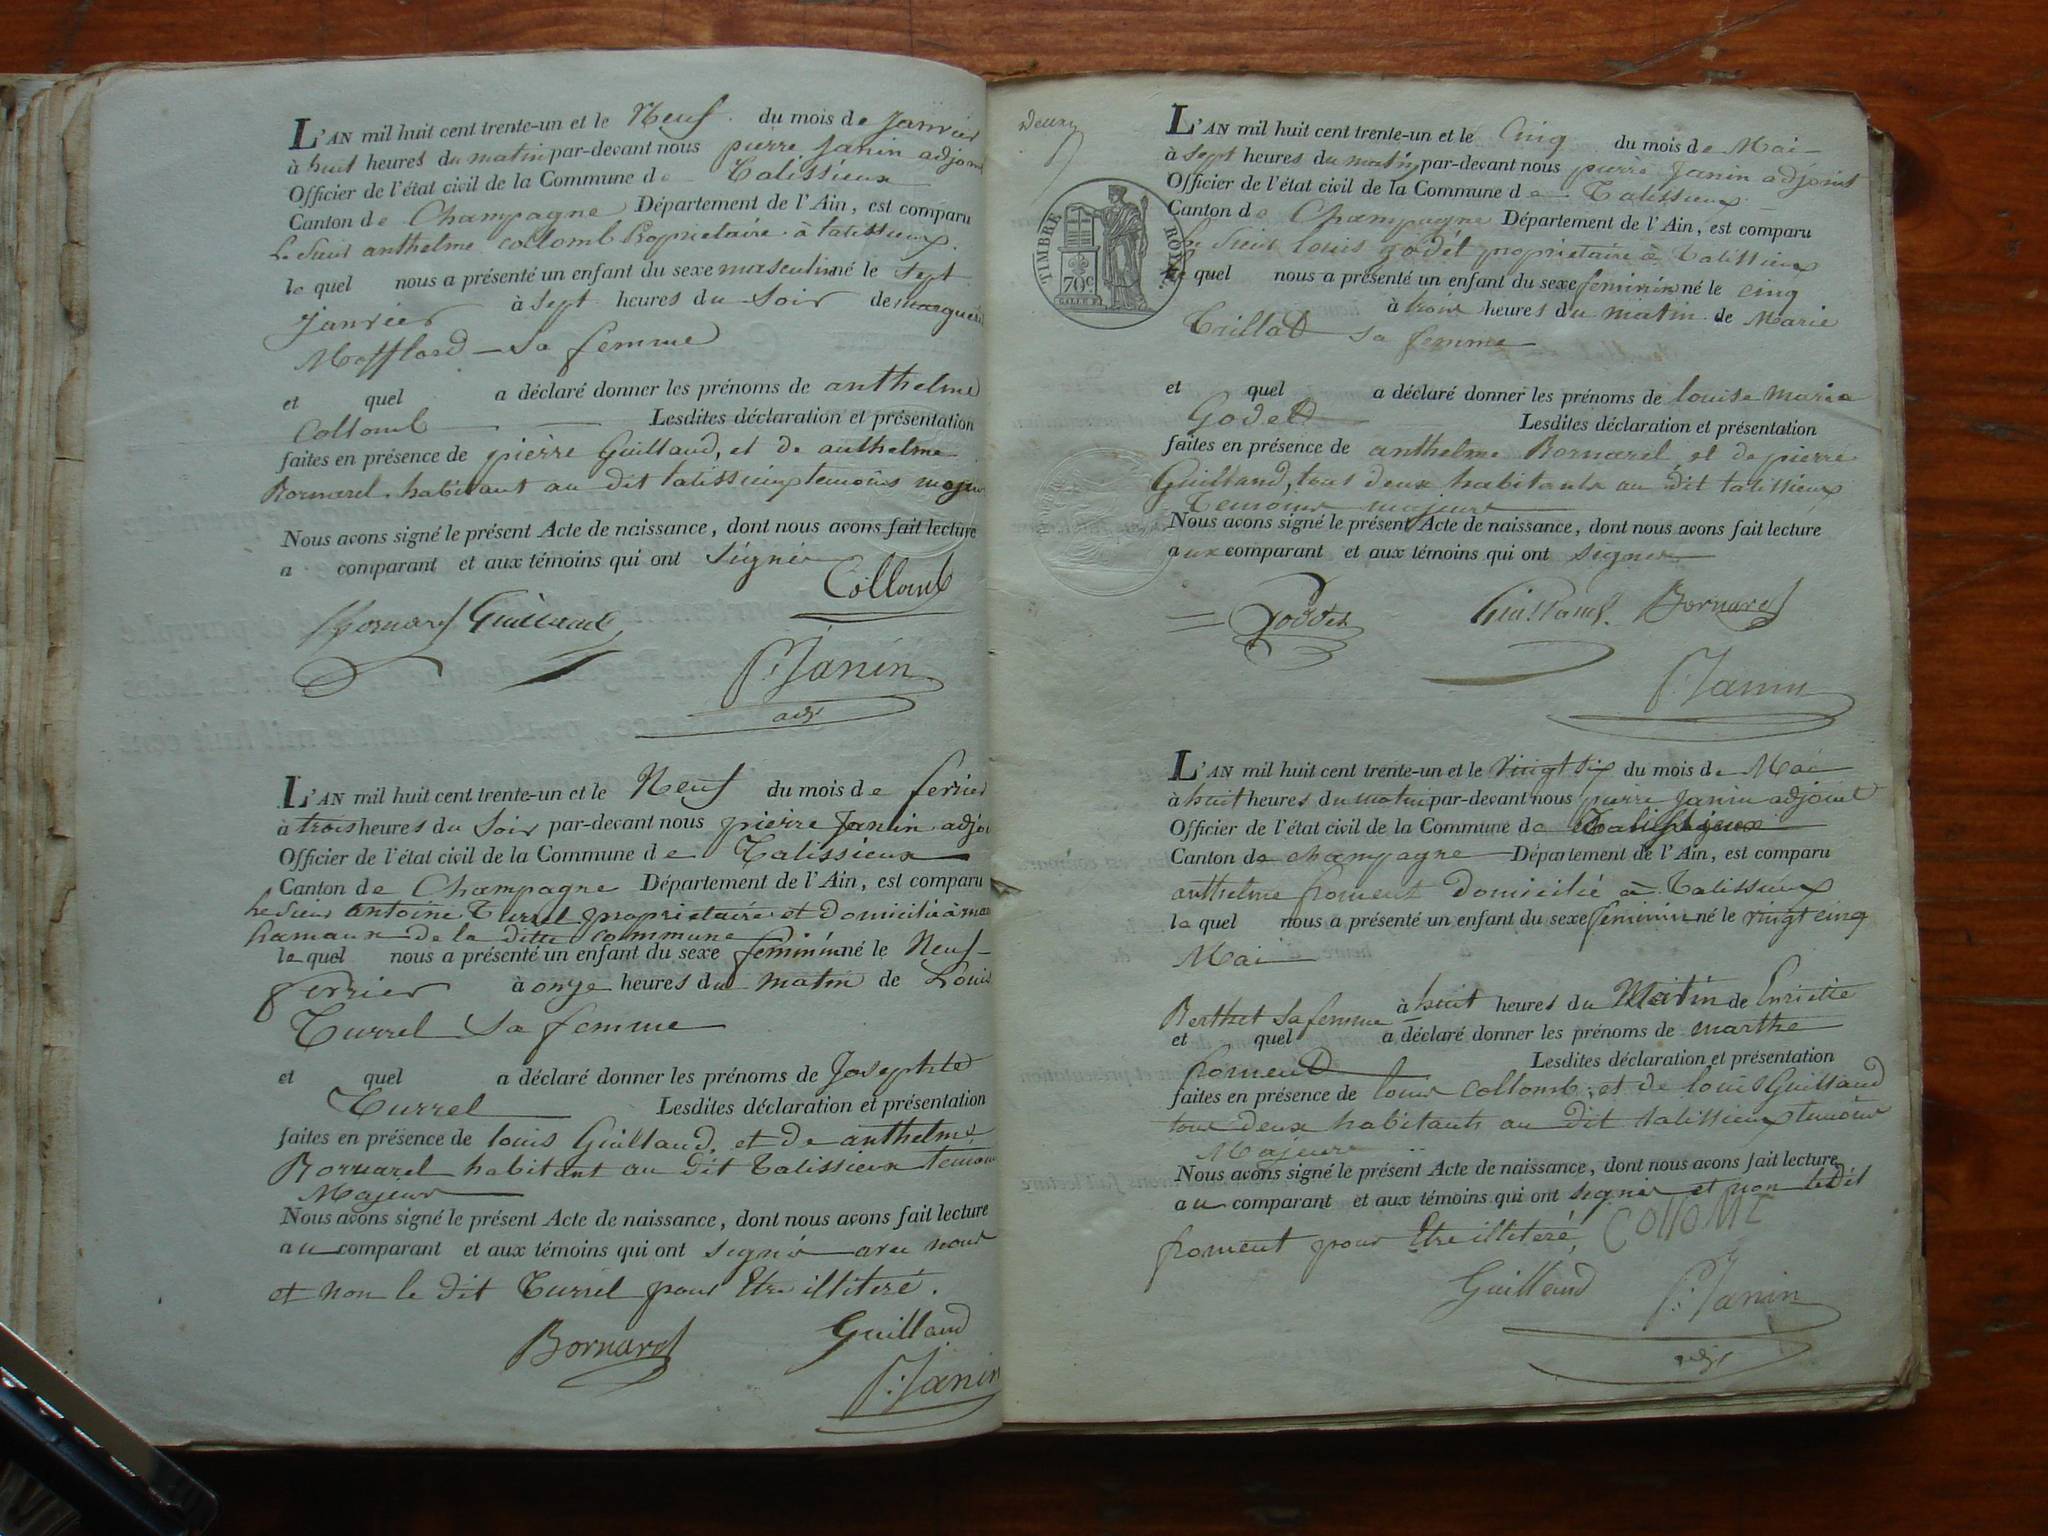 L'AN mil huit cent trente-un et le Neuf du mois de Janvier
à huit heures du matin par-devant nous pierre Janin adjoint
Officier de l'état civil de la Commune de Talissieux
Canton de Champagne Département de l'Ain, est comparu
Le Sieur anthelme collomb Propriétaire à talissieux
le quel nous a présenté un enfant du sexe masculin né le sept
Janvier à sept heures du Soir de
sa femme
et quel a déclaré donner les prénoms de anthelme
Collomb Lesdites déclaration et présentation
faites en présence de pierre Guilland, et de anthelme
Bornarel habitant au dit talissieux temoins majeurs
Nous avons signé le présent Acte de naissance, dont nous avons fait lecture
a comparant et aux témoins qui ont signé
Collomb
Bornarel Guilland
P. Janin
adj
L'AN mil huit cent trente-un et le Neuf du mois de fevrier
à trois heures du Soir par-devant nous pierre Janin adjo
Officier de l'état civil de la Commune de Talissieux
Canton de Champagne Département de l'Ain, est comparu
Le Sieur antoine Turrel propriétaire et domicilié à
hamaux de la ditte commune
le quel nous a présenté un enfant du sexe feminin né le Neuf
fevrier à onze heures du matin de Louis
Turrel Sa femme
et quel a déclaré donner les prénoms de Josephte
Turrel Lesdites déclaration et présentation
faites en présence de louis Guilland, et de anthelme
Bornarel habitant au dit Talissieux temoins
Majeurs
Nous avons signé le présent Acte de naissance, dont nous avons fait lecture
au comparant et aux témoins qui ont signé avec nous
et non le dit Turrel pour Etre illiteré.
Bornarel Guilland
P. Janin
TIMBRE ROYAL
70c
L'AN mil huit cent trente-un et le Cinq du mois de Mai
à sept heures du matin par-devant nous pierre Janin adjoint
Officier de l'état civil de la Commune de Talissieux
Canton de Champagne Département de l'Ain, est comparu
Le Sieur louis godet propriétaire à Talissieux
le quel nous a présenté un enfant du sexe feminin né le cinq
à trois heures du matin de Marie
Trillat sa femme
et quel a déclaré donner les prénoms de louise maria
Godet Lesdites déclaration et présentation
faites en présence de anthelme Bornarel et de pierre
Guilland, tous deux habitants au dit talissieux
Temoins majeurs
Nous avons signé le présent Acte de naissance, dont nous avons fait lecture
aux comparant et aux témoins qui ont signer
Goddet Guilland Bornarel
P. Janin
L'AN mil huit cent trente-un et le vingt six du mois de Mai
à huit heures du matin par-devant nous pierre Janin adjoint
Officier de l'état civil de la Commune de Talissieux
Canton de champagne Département de l'Ain, est comparu
anthelme froment Domicilié à Talissieux
le quel nous a présenté un enfant du sexe feminin né le vingt cinq
Mai
à huit heures du Matin de Enriette
Berthet Sa femme
et quel a déclaré donner les prénoms de marthe
froment Lesdites déclaration et présentation
faites en présence de louis collomb, et de louis Guilland
tous deux habitants au dit talissieux temoins
Majeurs
Nous avons signé le présent Acte de naissance, dont nous avons fait lecture
au comparant et aux témoins qui ont signé et non ledit
froment pour Etre illiteré, COLLOMB
Guilland P. Janin
adj